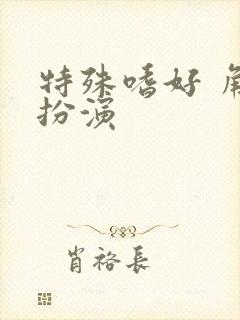 特殊嗜好 角
扮演
肖裕長